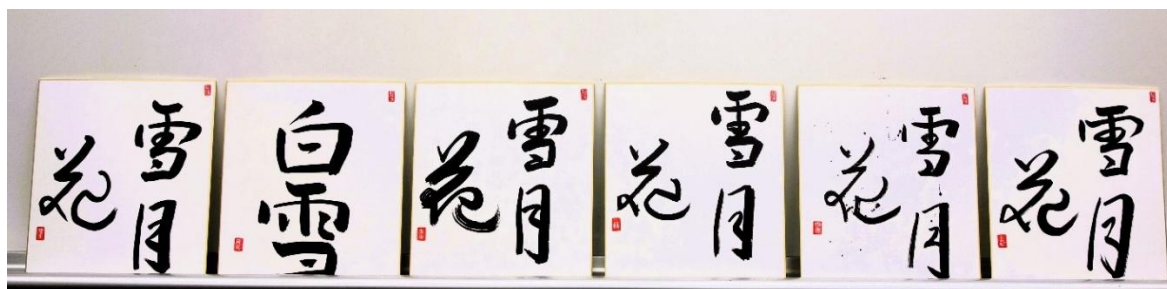 雪月
花
白雪
雪月
花
雪月
花
雪月
花
雪月
花